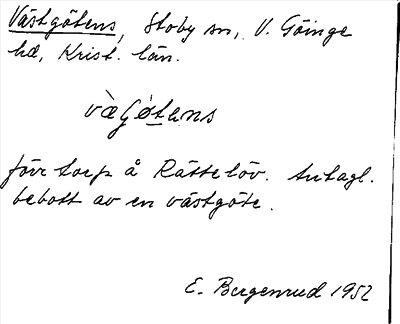 Västgötens, Stoby sn, V. Göinge
hd, Krist. län.
vàGótens
förr torp å Rättelöv. Antagl.
bebott av en västgöte.
E. Bergenrud 1952